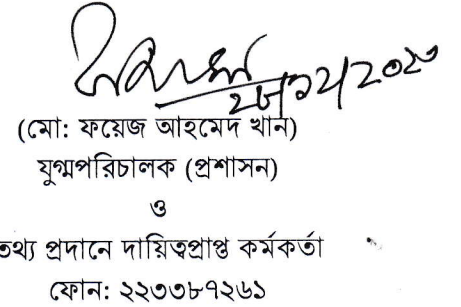 ২৮/১২/২০২৩
(মো: ফয়েজ আহমেদ খান)
যুগ্মপরিচালক (প্রশাসন)
ও
তথ্য প্রদানে দায়িত্বপ্রাপ্ত কর্মকর্তা
ফোন: ২২৩৩৮৭২৬১